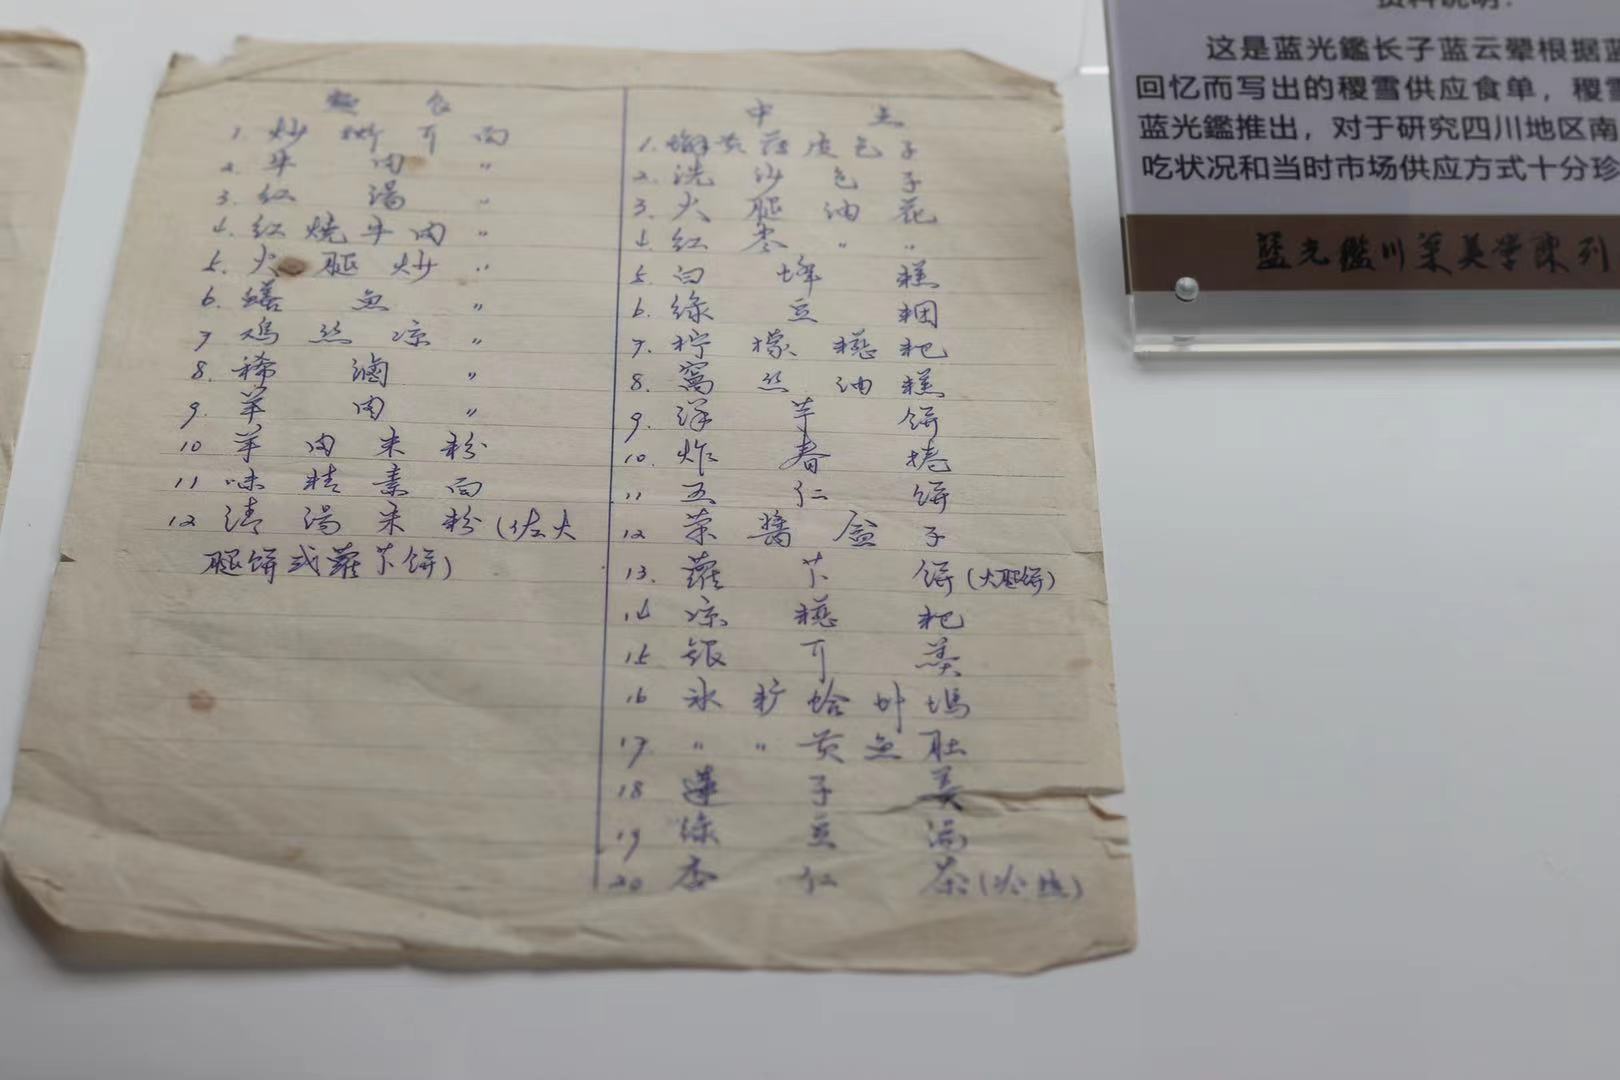 面 食
1. 炒 哨 可 面
2. 牛 肉 〃
3. 红 湯 〃
4. 红 燒 牛 肉 〃
5. 火 腿 炒 〃
6. 鱔 魚 〃
7 鸡 丝 凉 〃
8. 稀 滷 〃
9. 羊 肉 〃
10 羊 肉 米 粉
11 味 精 素 面
12 清 湯 米 粉 (佐火
腿饼或蘿卜饼)
中 点
1. 蟹黄薄皮包子
2. 洗 沙 包 子
3. 火 腿 油 花
4. 红 枣 〃 〃
5. 白 蜂 糕
6. 綠 豆
7. 柠 檬 糍 粑
8. 窩 丝 油 糕
9. 洋 芋 饼
10. 炸 春 捲
11 五 仁 饼
12 菜 醬 盒 子
13. 蘿 卜 饼 (火腿饼)
14 凉 糍 粑
15 银 耳 羹
16 冰 蛤 蚂
17. 〃 〃 黄 魚 肚
18 蓮 子 羹
19 綠 豆 湯
20 杏 仁 茶
资料说明：
这是蓝光鑑长子蓝云翚根据蓝
回忆而写出的稷雪供应食单，稷雪
蓝光鑑推出，对于研究四川地区南
吃状况和当时市场供应方式十分珍
藍光鑑川菜美学陳列